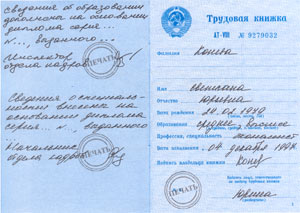 Сведения об образовании
дополнены на основании
диплома серия...
№... выданного...
Инспектор
отдела кадров
ПЕЧАТЬ
Сведения о специаль-
ности внесены на
основании диплома
серия... № выданного
Начальник
отдела кадров
ПЕЧАТЬ
Трудовая книжка
АТ-VIII № 9279032
Фамилия Конева
Имя Светлана
Отчество Юрьевна
Дата рождения
Образование среднее
Профессия, специальность
Дата заполнения 04 декабря
Подпись владельца книжки Конев
ПЕЧАТЬ